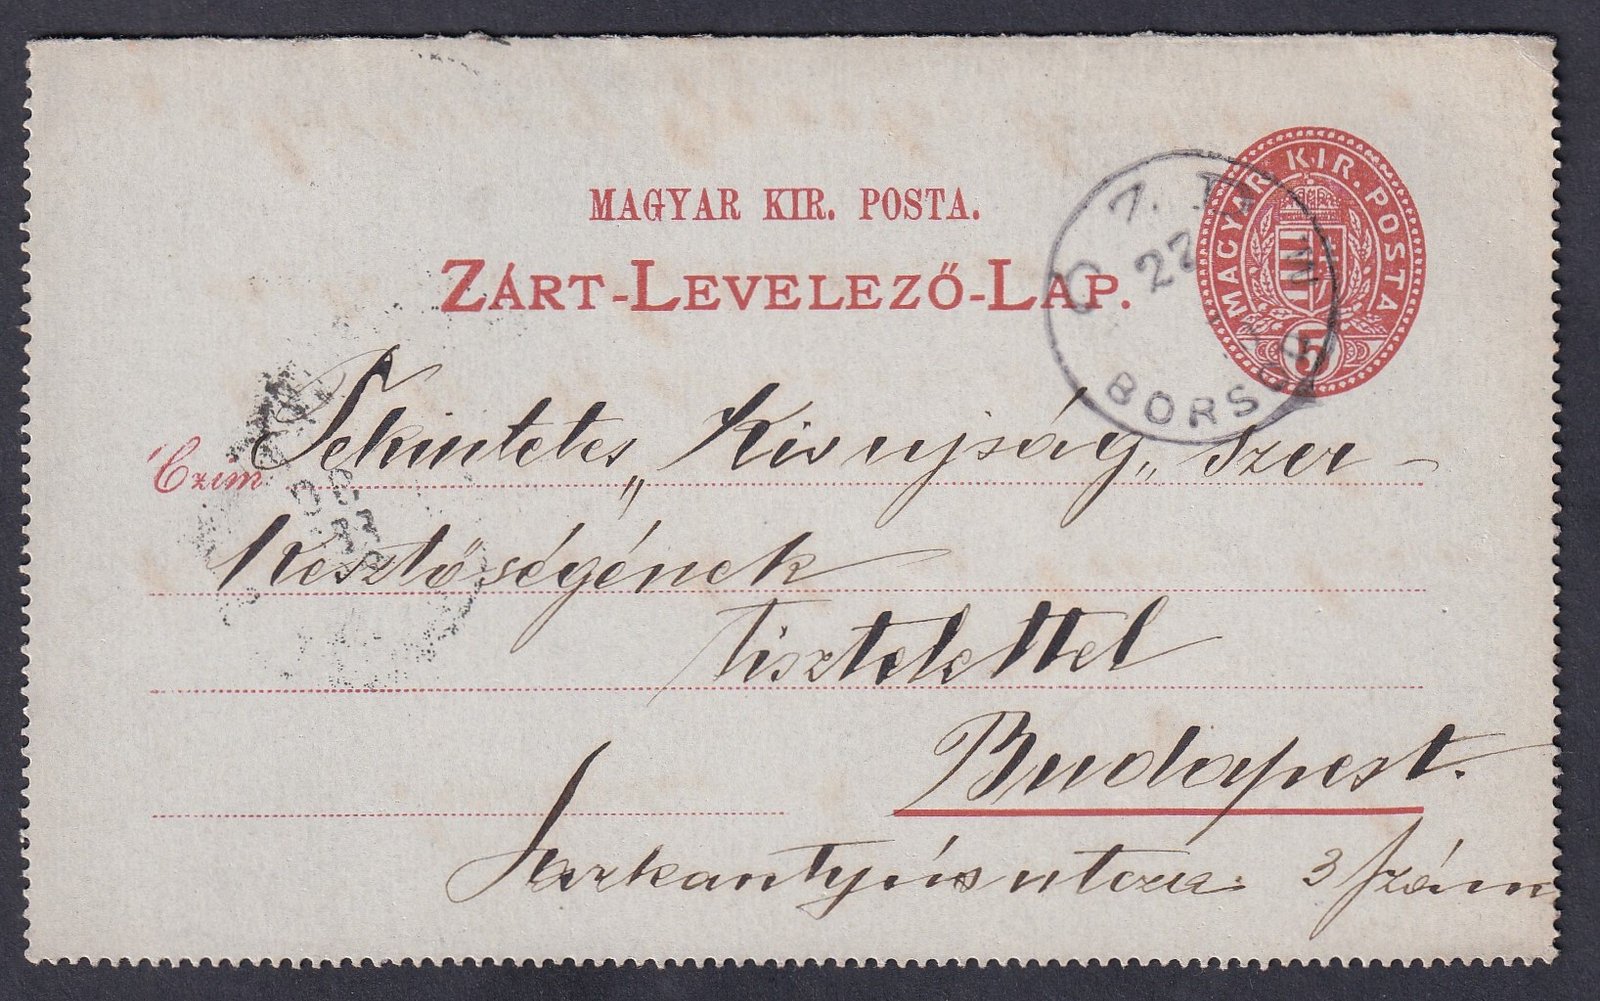 MAGYAR KIR. POSTA.
ZÁRT-LEVELEZŐ-LAP.
MAGYAR KIR. POSTA
5
BORSOD
22
Czim:
Tekintetes „Kis ujság„ szer-
kesztőségének
tisztelettel
Budapest.
Sarkantyús utcza 3 szám